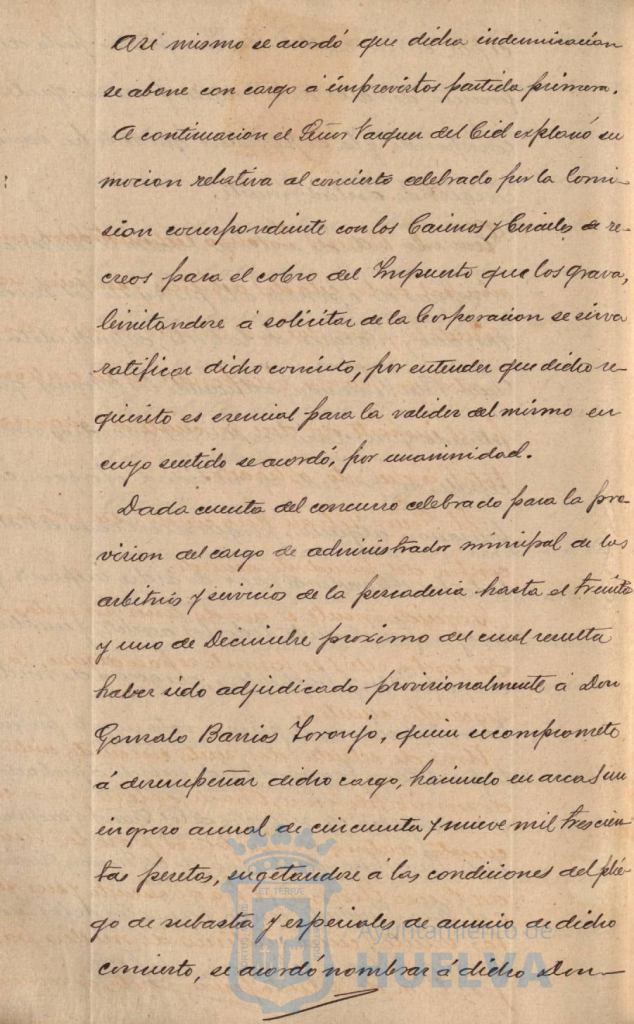 Asi mismo se acordó que dicha indemnizacion
se abone con cargo á imprevistos partida primera.
A continuacion el Señor Vazquez del Cid explanó su
mocion relativa al concierto celebrado por la Comi-
sion correspondiente con los Casinos y Circulos de re-
creos para el cobro del Impuesto que los grava,
limitandose á solicitar de la Corporacion se sirva
ratificar dicho concierto, por entender que dicho re-
quisito es esencial para la validez del mismo en
cuyo sentido se acordó, por unanimidad.
Dada cuenta del concurso celebrado para la pro-
vision del cargo de administrador municipal de los
arbitrios y servicios de la pescaderia hasta el treinta
y uno de Diciembre proximo del cual resulta
haber sido adjudicado provisionalmente á Don
Gonzalo Barrios Toronjo, quien se compromete
á desempeñar dicho cargo, haciendo en arcas un
ingreso anual de cincuenta y nueve mil trescien-
tas pesetas, sugetandose á las condiciones del plie-
go de subasta y especiales de anuncio de dicho
concierto, se acordó nombrar á dicho Don-
Ayuntamiento de
HUELVA